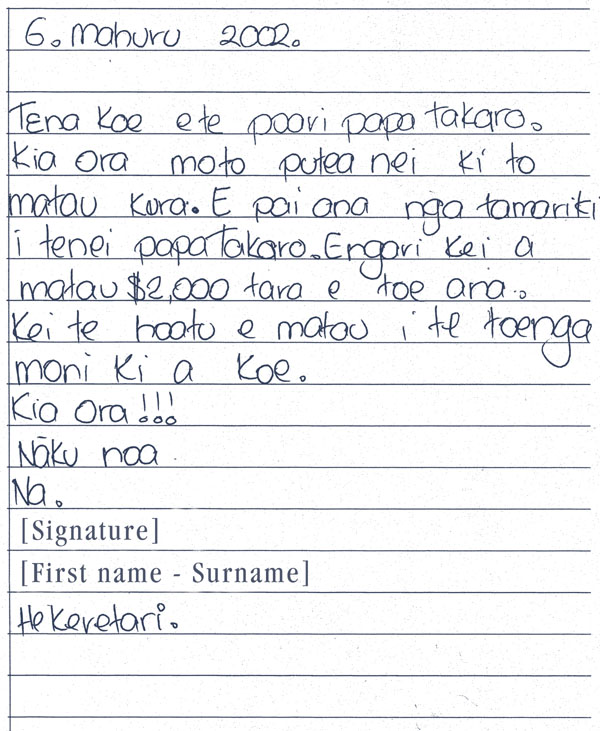 6. Mahuru 2002.
Tena koe e te poari papa takaro.
Kia ora moto putea nei ki to
matau kura. E pai ana nga tamariki
i tenei papa takaro. Engari kei a
matau $2,000 tara e toe ana.
Kei te hoatu e matou i te toenga
moni ki a koe.
Kia Ora!!!
Nāku noa
Na.
[Signature]
[First name - Surname]
He Keretari.